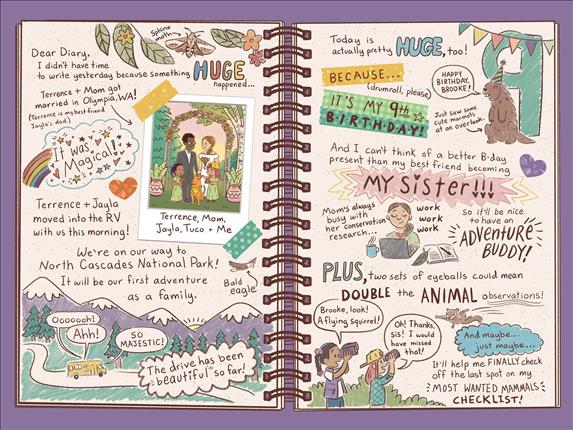 Dear Diary,
I didn't have time
to write yesterday because something HUGE
happened...
Sphinx
moth
Terrence + Mom got
married in Olympia, WA!
(Terrence is my best friend
Jayla's dad.)
It was
Magical!
Terrence, Mom,
Jayla, Tuco + Me
Terrence + Jayla
moved into the RV
with us this morning!
We're on our way to
North Cascades National Park!
It will be our first adventure
as a family.
Bald
eagle
Ooooooh!
Ahh!
SO
MAJESTIC!
The drive has been
beautiful so far!
Today is
actually pretty HUGE, too!
BECAUSE...
(drumroll, please)
IT'S MY 9th
BIRTHDAY!
HAPPY
BIRTHDAY,
BROOKE!
Just saw some
cute marmots
at an overlook.
9
And I can't think of a better B-day
present than my best friend becoming
MY SISTER!!!
Mom's always
busy with
her conservation
research...
work
work
work
So it'll be nice
to have an
ADVENTURE
BUDDY!
PLUS, two sets of eyeballs could mean
DOUBLE the ANIMAL observations!
Brooke, look!
A flying squirrel!
Oh! Thanks,
sis! I would
have missed
that!
And maybe...
just maybe...
It'll help me FINALLY check
off the last spot on my
MOST WANTED MAMMALS
CHECKLIST!